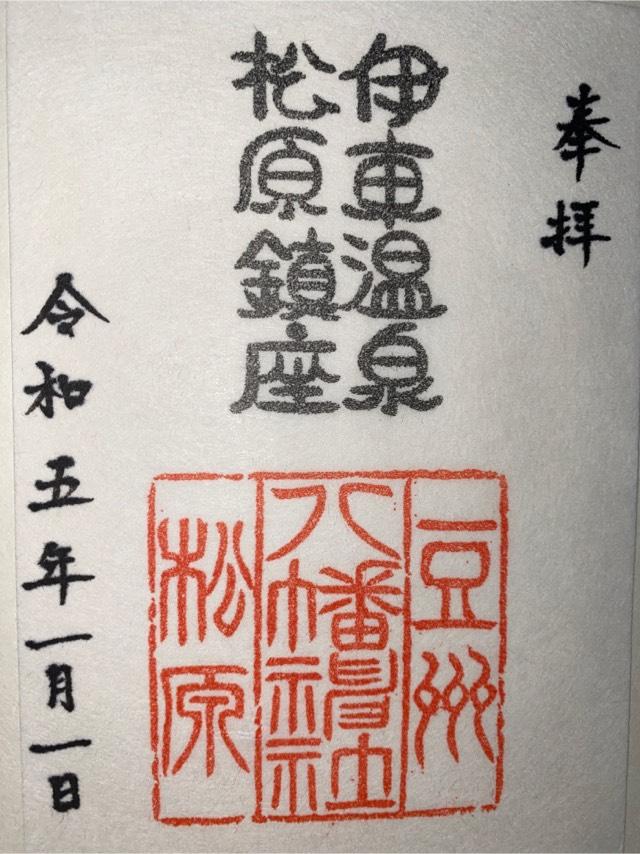 奉拝
伊東温泉
松原鎮座
豆州
八幡神社
松原
令和五年一月一日